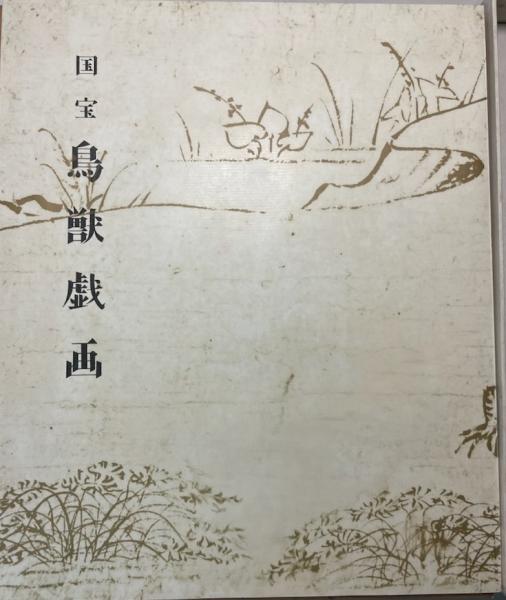 国宝
鳥獣戯画